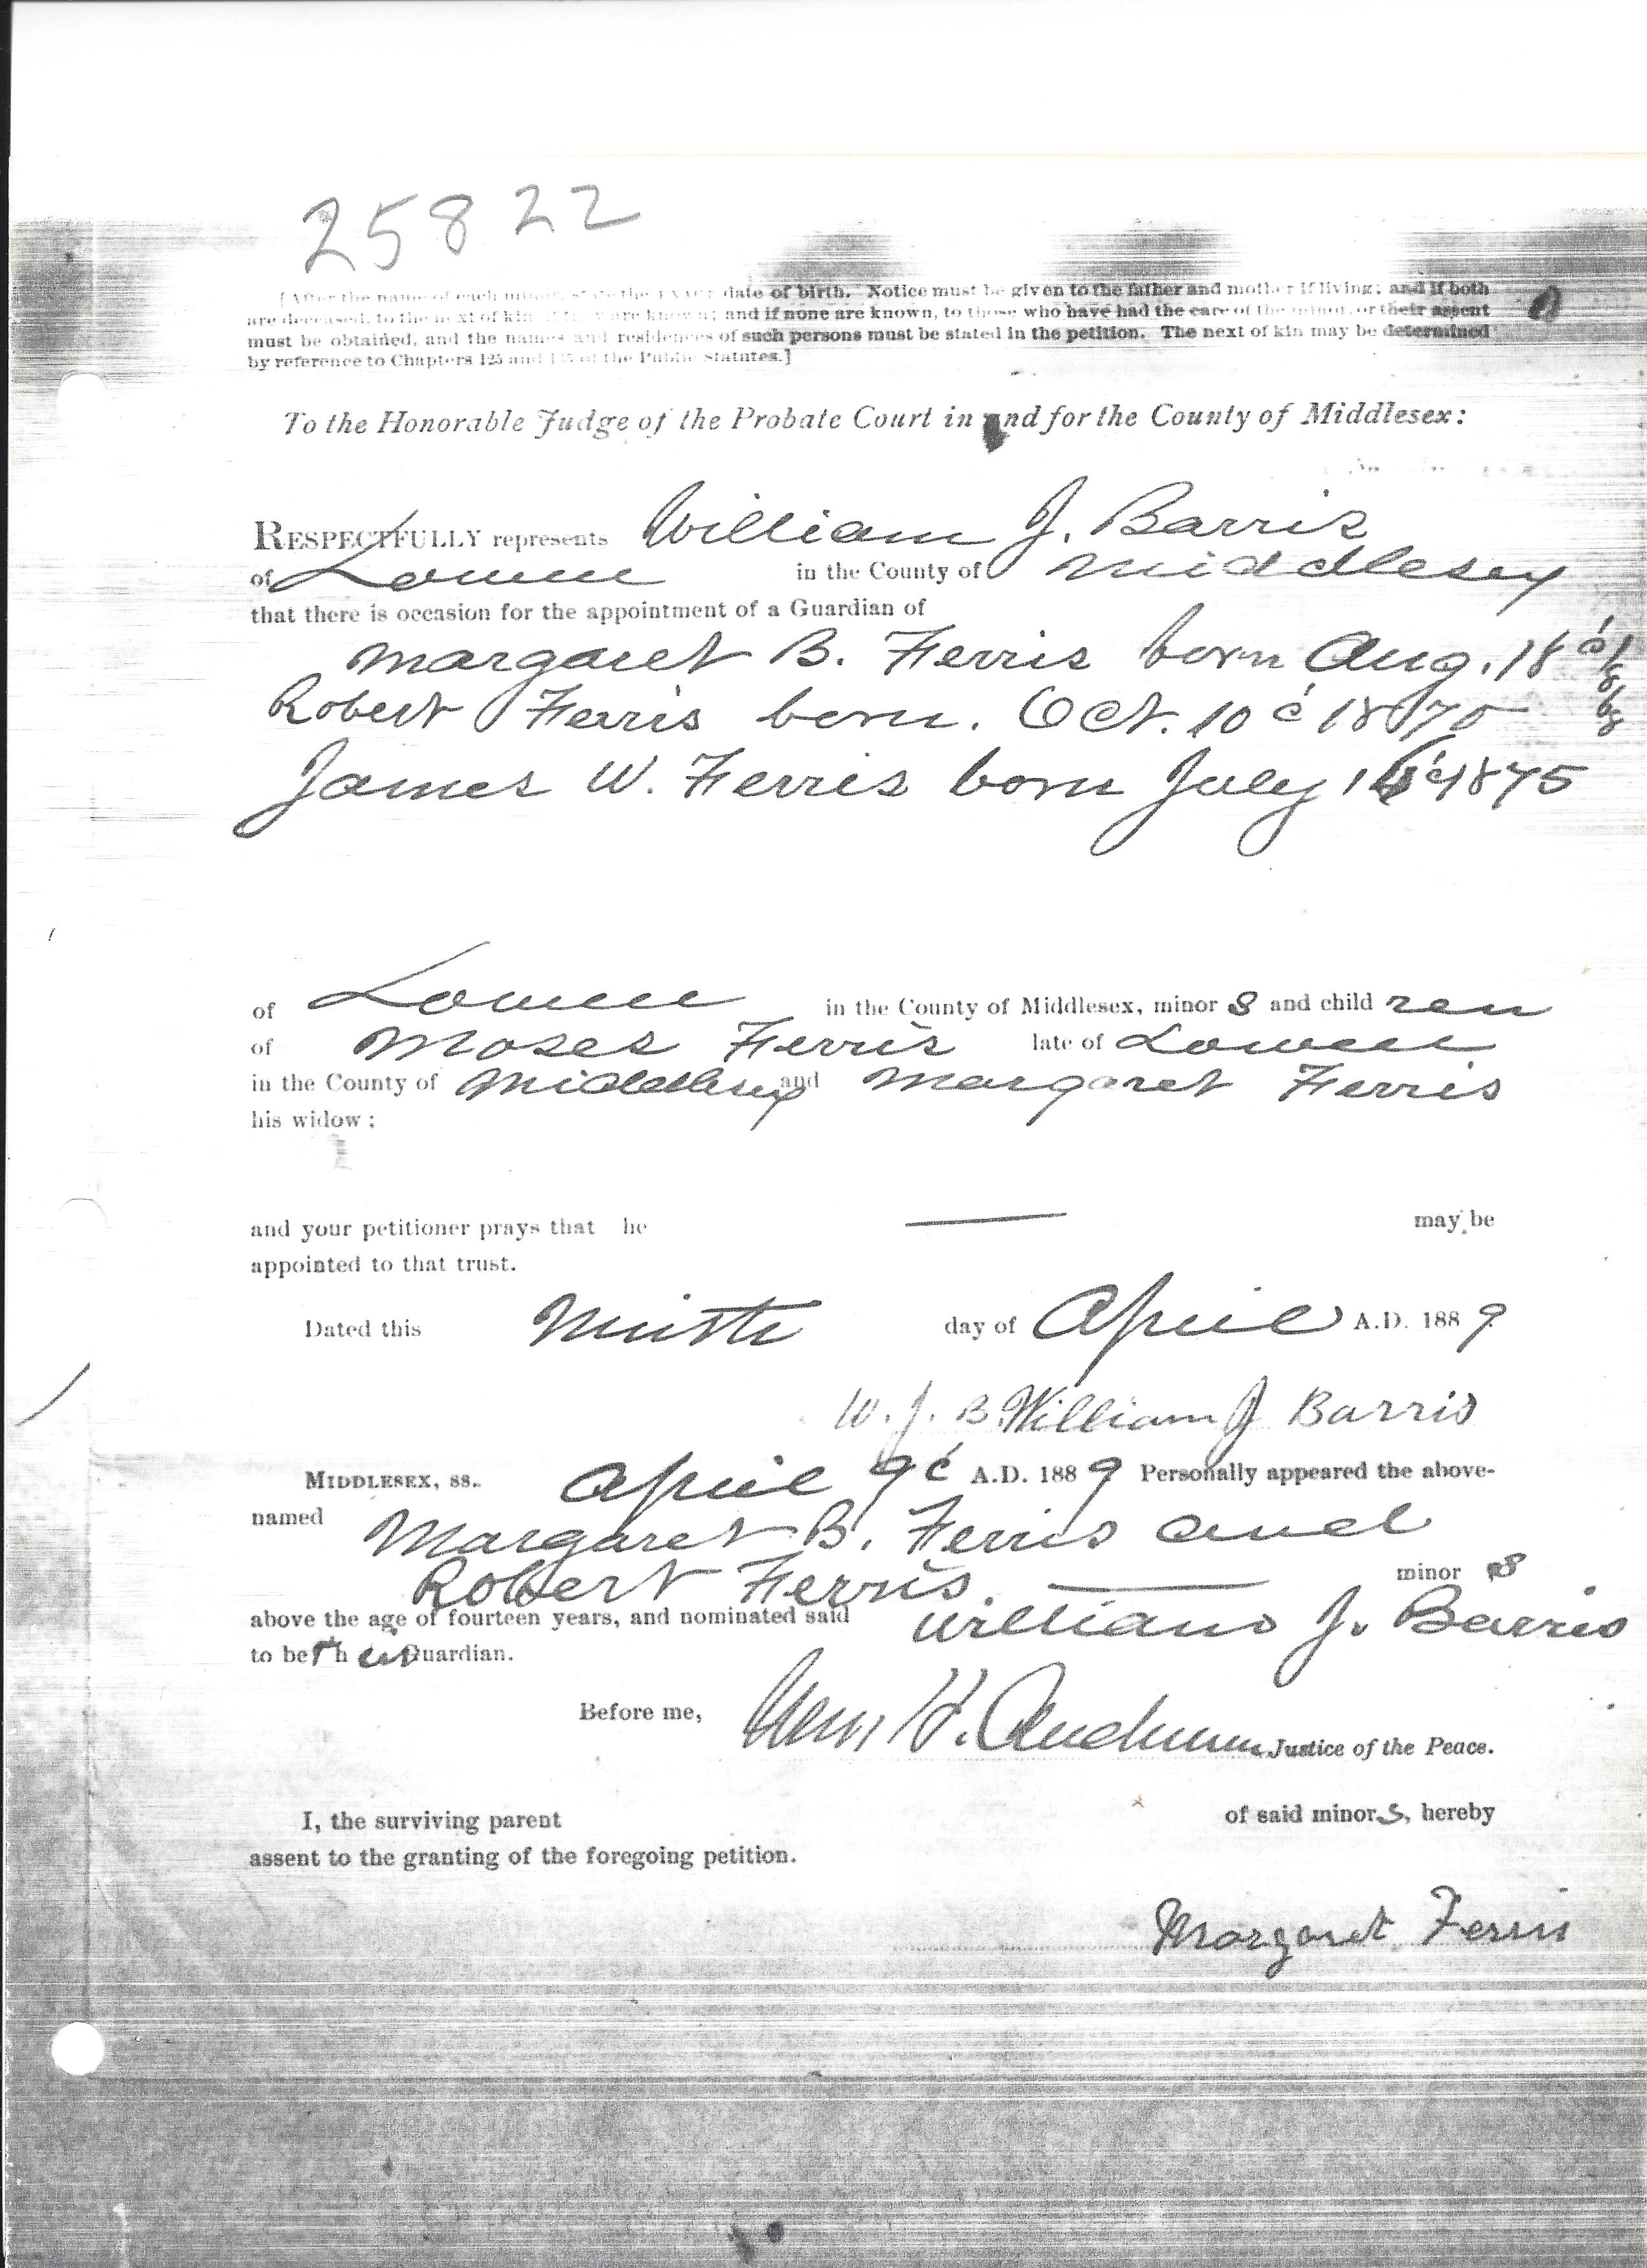 25822
[After the name of each minor, state the EXACT date of birth. Notice must be given to the father and mother if living; and if both
are deceased, to the next of kin, if they are known; and if none are known, to those who have had the care of the minor, or their assent
must be obtained, and the names and residences of such persons must be stated in the petition. The next of kin may be determined
by reference to Chapters 125 and of the Public Statutes.]
To the Honorable Judge of the Probate Court in and for the County of Middlesex:
RESPECTFULLY represents William J. Barris
of Lowell in the County of Middlesex
that there is occasion for the appointment of a Guardian of
Margaret B. Ferris born Aug. 18
Robert Ferris born. Oct. 10 1870
James W. Ferris born July 1875
of Lowell in the County of Middlesex, minor s and child ren
of Moses Ferris late of Lowell
in the County of Middlesex and Margaret Ferris
his widow;
and your petitioner prays that he — may be
appointed to that trust.
Dated this Ninth day of April A.D. 1889
W. J. B. William J Barris
MIDDLESEX, ss. April 9 A.D. 1889 Personally appeared the above-
named Margaret B. Ferris and
Robert Ferris — minor s
above the age of fourteen years, and nominated said William J. Barris
to be their Guardian.
Before me, H. Justice of the Peace.
I, the surviving parent of said minors, hereby
assent to the granting of the foregoing petition.
Margaret Ferris